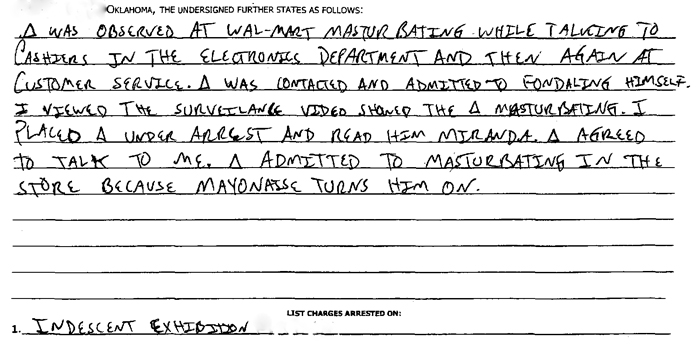 OKLAHOMA, THE UNDERSIGNED FURTHER STATES AS FOLLOWS:
Δ WAS OBSERVED AT WAL-MART MASTURBATING WHILE TALKING TO
CASHIERS IN THE ELECTRONICS DEPARTMENT AND THEN AGAIN AT
CUSTOMER SERVICE. Δ WAS CONTACTED AND ADMITTED TO FONDALING HIMSELF.
I VIEWED THE SURVEILANCE VIDEO SHOWED THE Δ MASTURBATING. I
PLACED Δ UNDER ARREST AND READ HIM MIRANDA. Δ AGREED
TO TALK TO ME. Δ ADMITTED TO MASTURBATING IN THE
STORE BECAUSE MAYONAISE TURNS HIM ON.
LIST CHARGES ARRESTED ON:
1. INDESCENT EXHIBITION